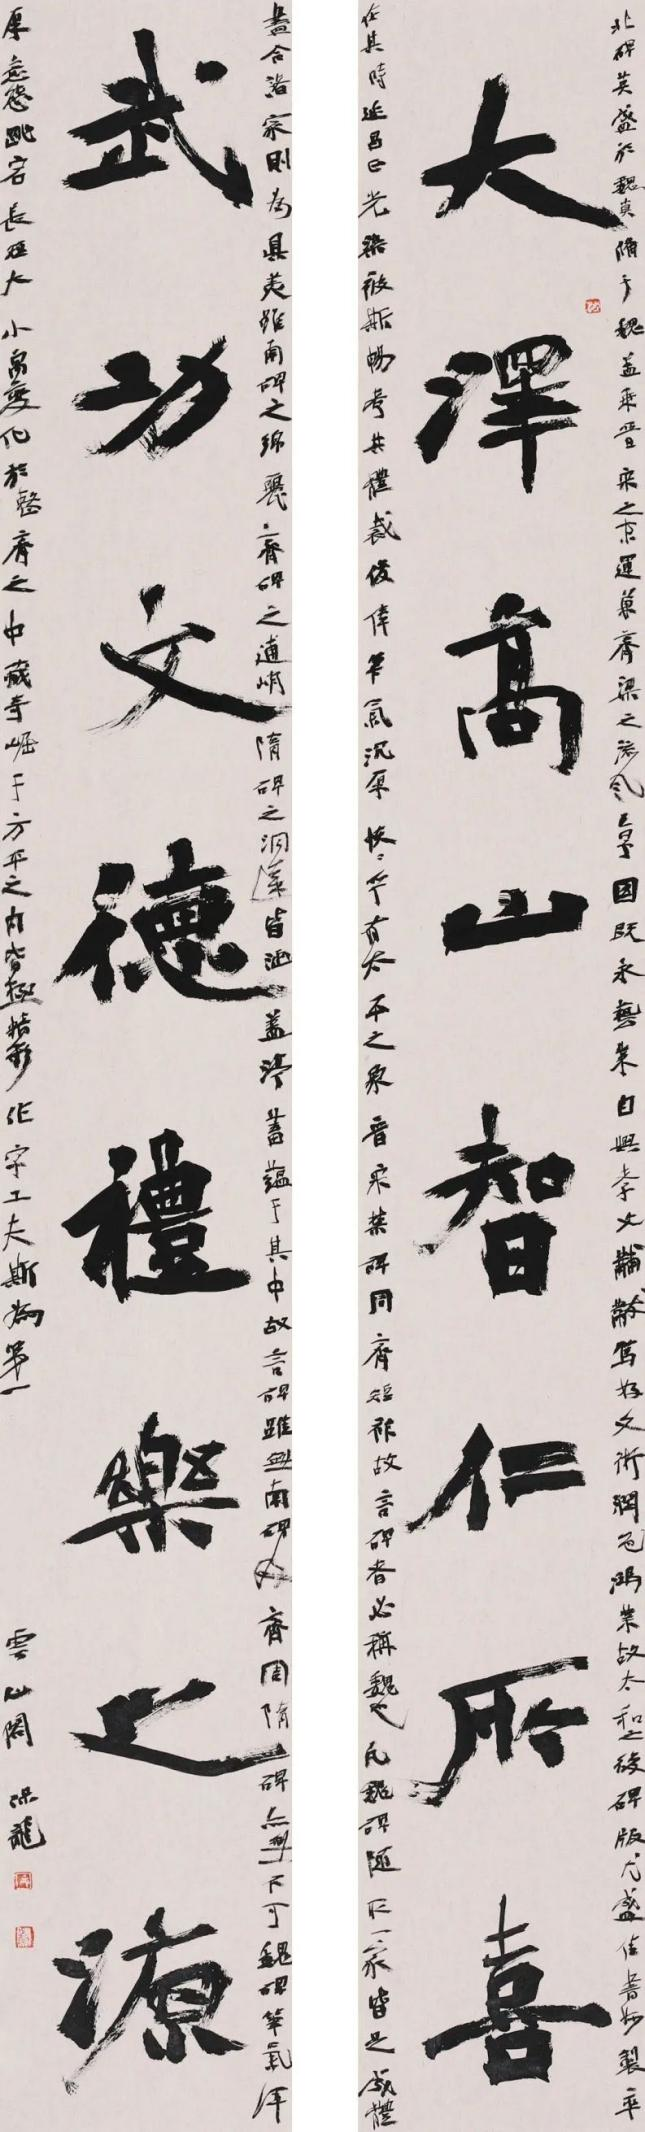 大澤高山智仁所喜
北碑莫盛於魏莫備于魏蓋乘晉宋之末運兼齊梁之流風享國既永藝業自興孝文黼黻篤好文術潤色鴻業故太和之後碑版尤盛佳書妙製率
在其時延昌正光染被斯暢考其體裁俊偉筆氣沉厚恢〻乎有太平之象晉宋禁碑周齊短祚故言碑者必稱魏也凡魏碑隨取一家皆足成體
盡合諸家則為具美雖南碑之綿麗齊碑之逋峭隋碑之洞達皆涵蓋渟蓄蘊于其中故言碑雖無南碑及齊周隋碑亦無不可魏碑筆氣渾
武功文德禮樂之源
厚意態跳宕長短大小寓變化於整齊之中藏奇崛于方平之內皆極精彩作字工夫斯為第一
保龍